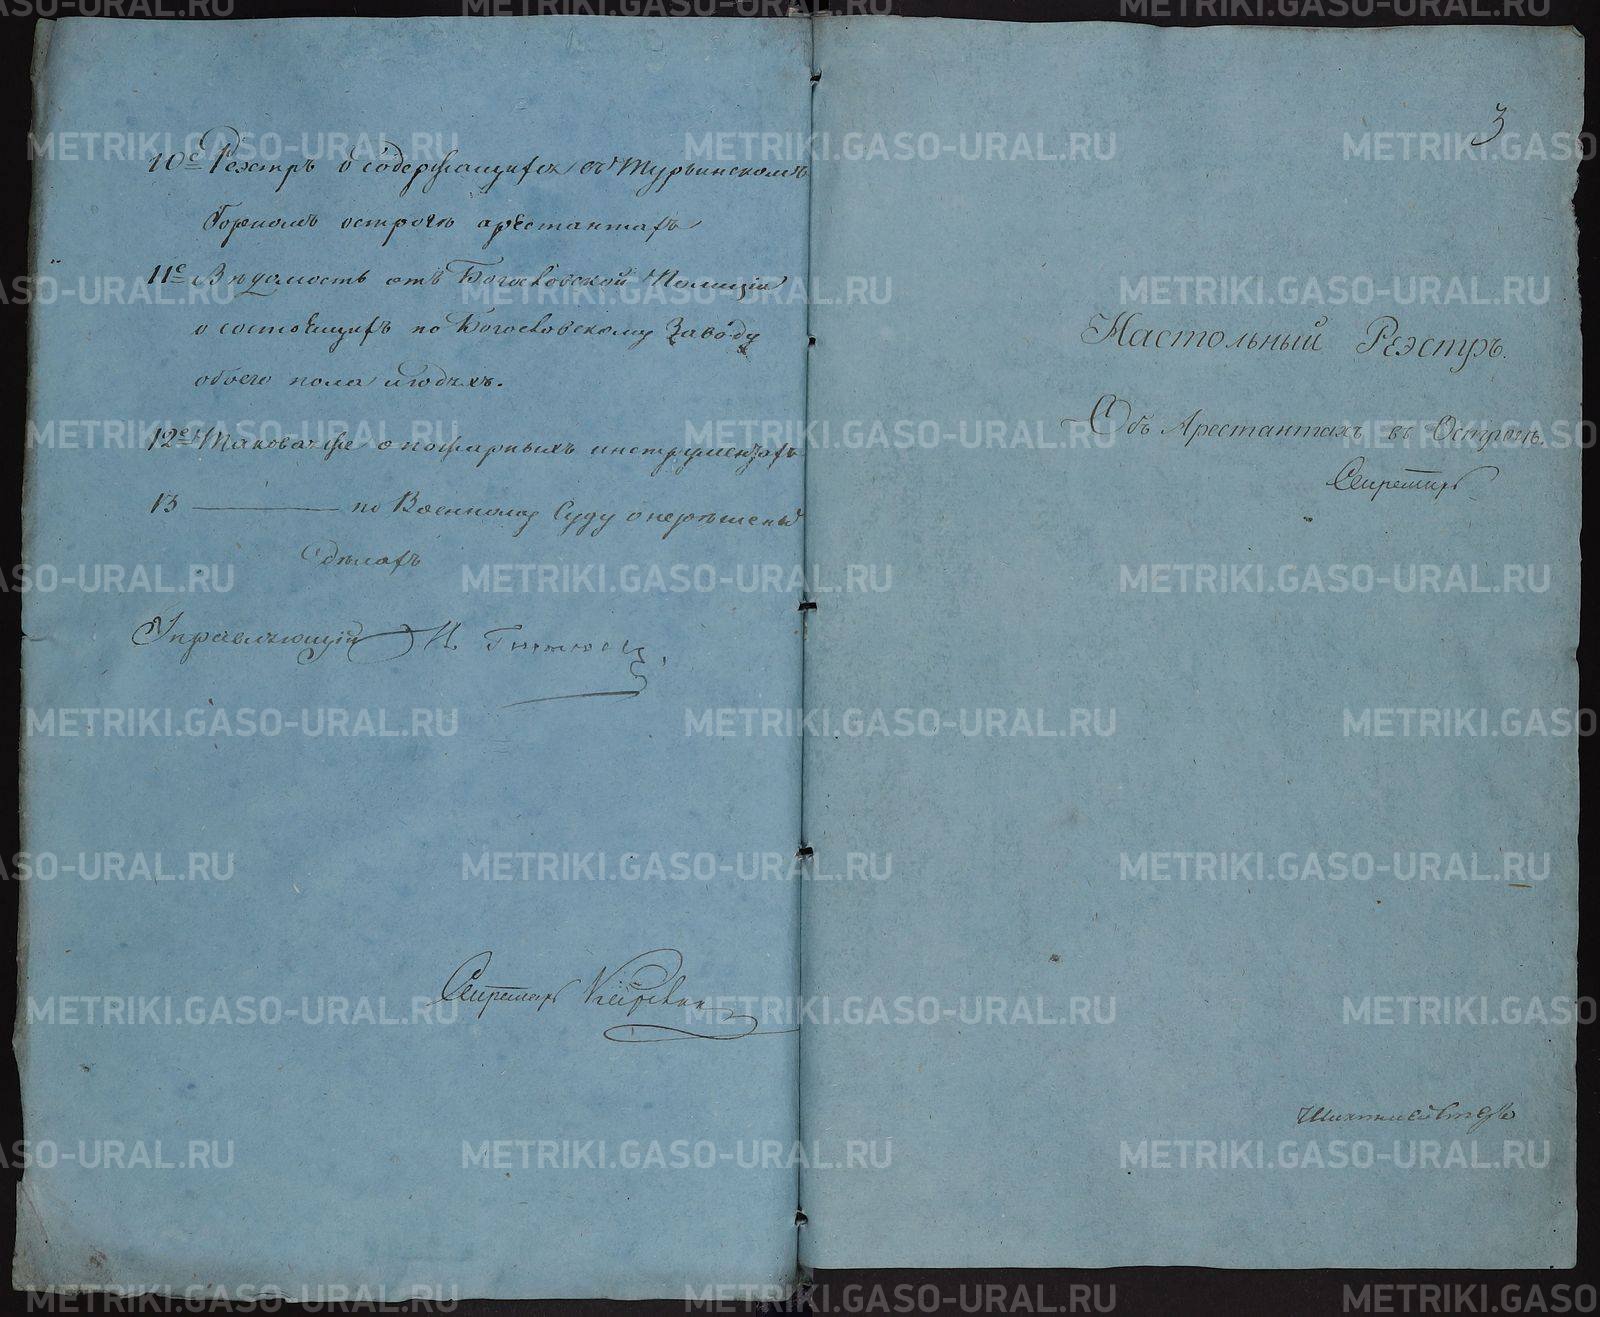 10е Реэстръ о содержащихся въ Турьинскомъ
Горномъ острогѣ арестантахъ
11е Вѣдомость отъ Богословской Полиціи
о состоящихъ по Богословскому Заводу
обоего пола людѣхъ.
12е Таковаяже о пожарныхъ инструментахъ
13 ——— по Военному Суду о нерѣшеныхъ
дѣлахъ
Управляющій
Секретарь
3
Настольный Реэстръ.
Объ Арестантахъ въ Острогѣ.
Секретарь
METRIKI.GASO-URAL.RU